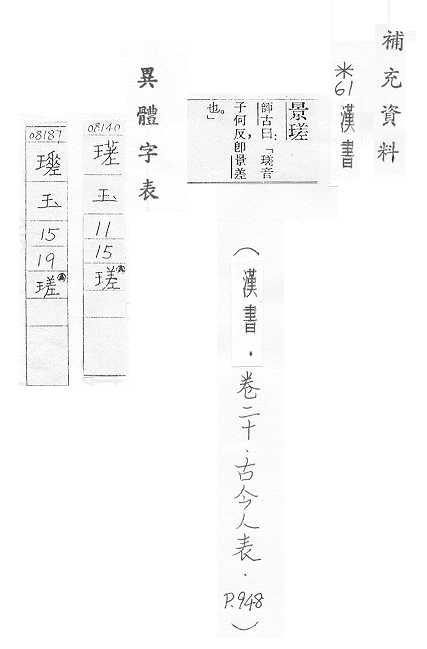 補充資料
*61 漢書
景瑳
師古曰:「瑳音
子何反,即景差
也。」
(漢書.卷二十.古今人表.P.948)
異體字表
08140
瑳
玉
11
15
瑳
08187
玉
15
19
瑳